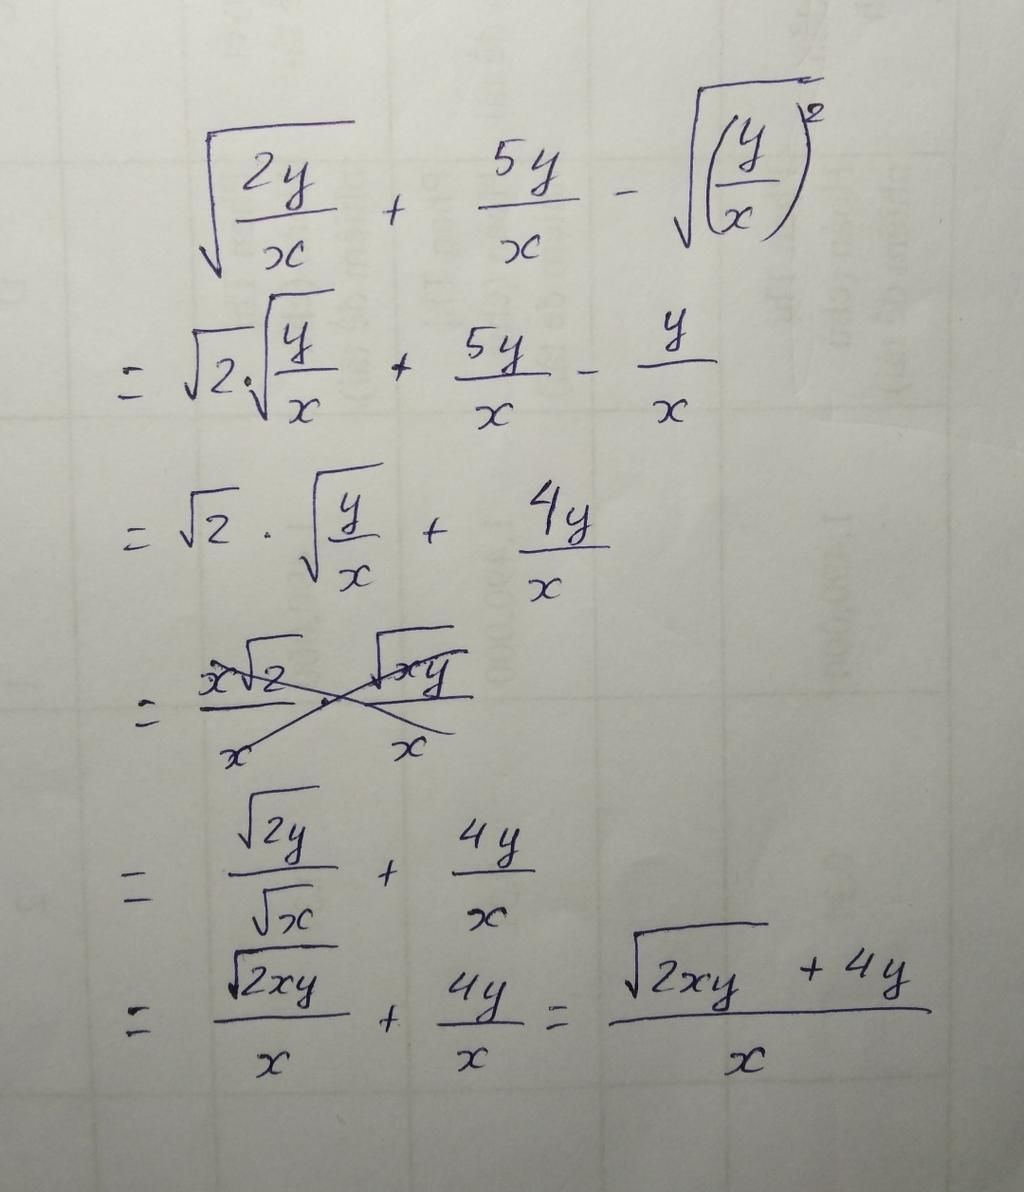 √(2y/x) + 5y/x - √((y/x)²)
= √2 · √(y/x) + 5y/x - y/x
= √2 · √(y/x) + 4y/x
= x√2/x · √(xy)/x
= √(2y)/√x + 4y/x
= √(2xy)/x + 4y/x = (√(2xy) + 4y)/x